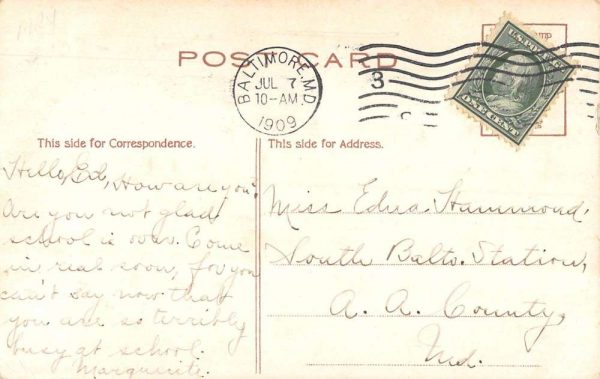 POST CARD
BALTIMORE, MD.
JUL 7
10-AM
1909
3
ONE CENT
This side for Correspondence.
Hello, Ed, How are you?
Are you not glad
school is over. Come
in real soon, for you
can't say now that
you are so terribly
busy at school.
Marguerite.
This side for Address.
Miss Edna Hammond,
South Balto. Station,
A. A. County,
Md.